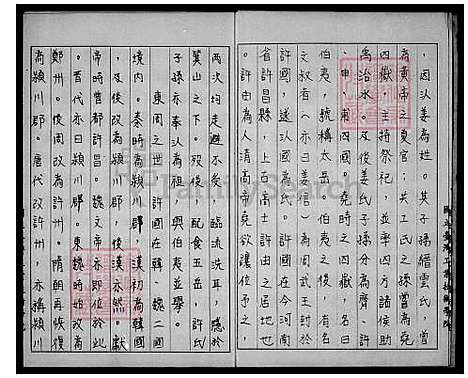 ，因以姜為姓。其子孫縉雲氏，曾
為黃帝之夏官；共工氏之孫曾為堯
四嶽，主持祭祀，並率四方諸侯助
禹治水。及後姜氏子孫分為齊、許
、申、甫四國。堯時之四嶽，名曰
伯夷，號稱太岳，伯夷之後，有名
文叔者（亦曰姜）周武王封之於
許國，遂以國為氏。許國在今河南
省許昌縣，上古高士許由之居地也
。許由為人清高，帝堯欲讓位予之，
兩次均走避不受，臨流洗耳，隱於
箕山之下。歿後，配食五岳，許氏
子孫亦奉以為祖，與伯夷並舉。
東周之世，許國在韓、魏二國
境內。秦時為潁川郡。漢初為韓國
，及後改為潁川郡，後漢亦然。獻
帝時曹都許昌。魏文帝亦即位於此
。晉代亦曰潁川郡。東魏時始改為
鄭州。後周改為許州。隋朝再恢復
為潁川郡。唐代改許州，亦稱潁川
FamilySearch